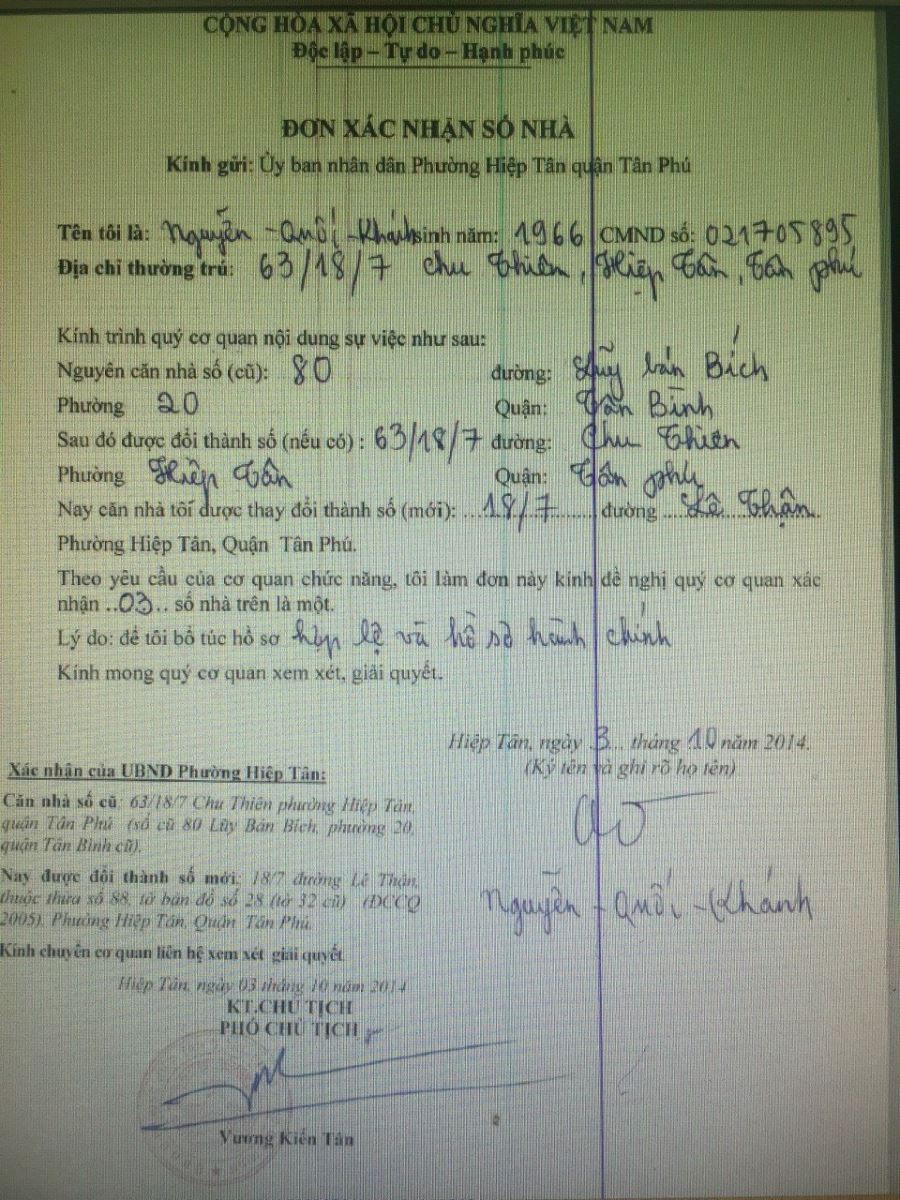 CỘNG HÒA XÃ HỘI CHỦ NGHĨA VIỆT NAM
Độc lập – Tự do – Hạnh phúc
ĐƠN XÁC NHẬN SỐ NHÀ
Kính gửi: Ủy ban nhân dân Phường Hiệp Tân quận Tân Phú
Tên tôi là: Nguyễn - Quối - Khánh sinh năm: 1966 CMND số: 021705895
Địa chỉ thường trú: 63/18/7 Chu Thiên, Hiệp Tân, Tân phú
Kính trình quý cơ quan nội dung sự việc như sau:
Nguyên căn nhà số (cũ): 80 đường: Lũy bán Bích
Phường 20 Quận: Tân Bình
Sau đó được đổi thành số (nếu có) : 63/18/7 đường: Chu Thiên
Phường Hiệp Tân Quận: Tân phú
Nay căn nhà tôi được thay đổi thành số (mới): ...18/7......... đường ....Lê Thận..
Phường Hiệp Tân, Quận Tân Phú.
Theo yêu cầu của cơ quan chức năng, tôi làm đơn này kính đề nghị quý cơ quan xác
nhận ..03.. số nhà trên là một.
Lý do: để tôi bổ túc hồ sơ hợp lệ và hồ sơ hành chính
Kính mong quý cơ quan xem xét, giải quyết.
Hiệp Tân, ngày 3... tháng 10 năm 2014.
(Ký tên và ghi rõ họ tên)
Xác nhận của UBND Phường Hiệp Tân:
Căn nhà số cũ: 63/18/7 Chu Thiên phường Hiệp Tân,
quận Tân Phú (số cũ 80 Lũy Bán Bích, phường 20,
quận Tân Bình cũ).
Nay được đổi thành số mới: 18/7 đường Lê Thận,
thuộc thửa số 88, tờ bản đồ số 28 (tờ 32 cũ) (ĐCCQ
2005), Phường Hiệp Tân, Quận Tân Phú.
Nguyễn - Quối - Khánh
Kính chuyển cơ quan liên hệ xem xét giải quyết.
Hiệp Tân, ngày 03 tháng 10 năm 2014
KT.CHỦ TỊCH
PHÓ CHỦ TỊCH
Vương Kiến Tân